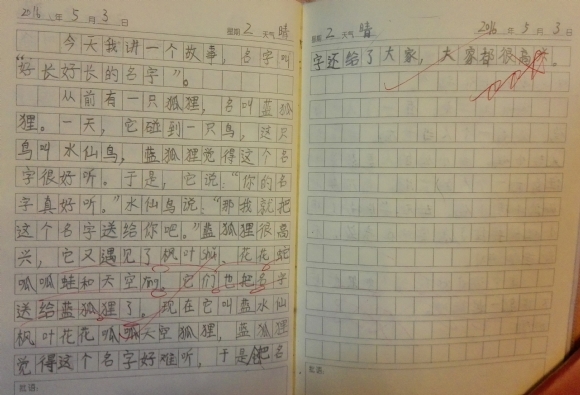 2016 年 5 月 3 日
星期 2 天气 晴
今天我讲一个故事，名字叫
“好长好长的名字”。
从前有一只狐狸，名叫蓝狐
狸。一天，它碰到一只鸟，这只
鸟叫水仙鸟，蓝狐狸觉得这个名
字很好听。于是，它说：“你的名
字真好听。”水仙鸟说：“那我就把
这个名字送给你吧。”蓝狐狸很高
兴，它又遇见了枫叶，花花蛇
呱呱蛙和天空，它们也把名字
送给蓝狐狸了。现在它叫蓝水仙
枫叶花花呱呱天空狐狸，蓝狐狸
觉得这个名字好难听，于是把名
批语：
星期 2 天气 晴
2016 年 5 月 3 日
字还给了大家，大家都很高兴。
批语：